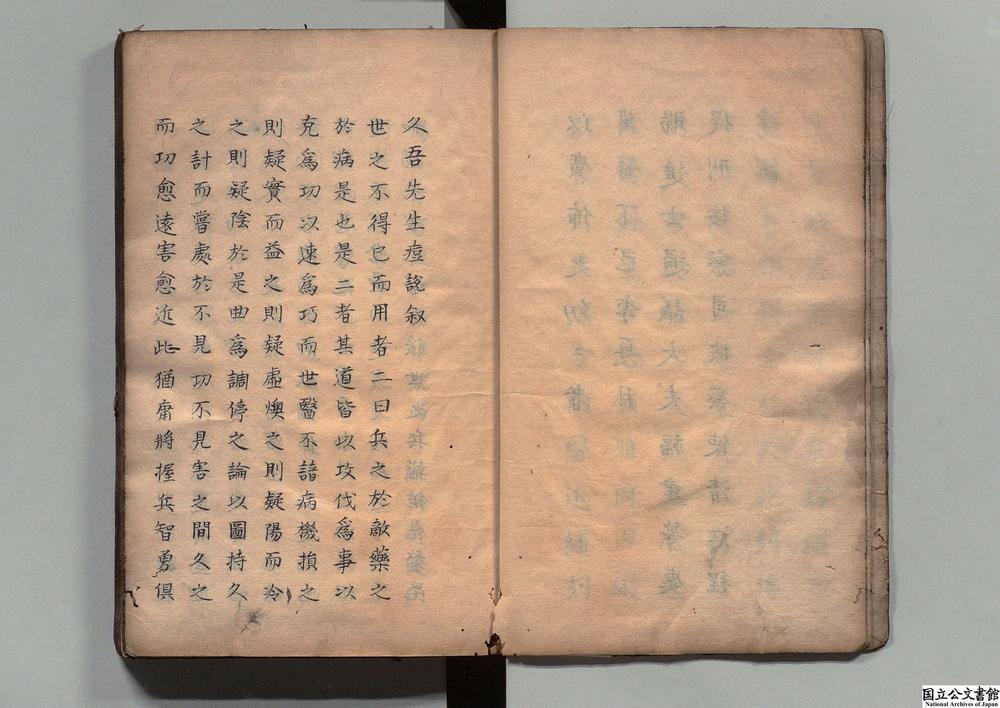 久吾先生痘說叙
世之不得已而用者二曰兵之於敵藥之
於病是也是二者其道皆以攻伐爲事以
克爲功以速爲巧而世醫不諳病機損之
則疑實而益之則疑虛燠之則疑陽而冷
之則疑陰於是曲爲調停之論以圖持久
之計而嘗處於不見功不見害之間久之
而功愈遠害愈近此猶庸將握兵智勇俱
国立公文書館
National Archives of Japan